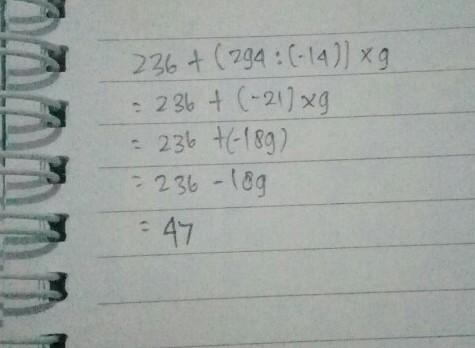 236 + (294 : (-14)) x 9
= 236 + (-21) x 9
= 236 + (-189)
= 236 - 189
= 47